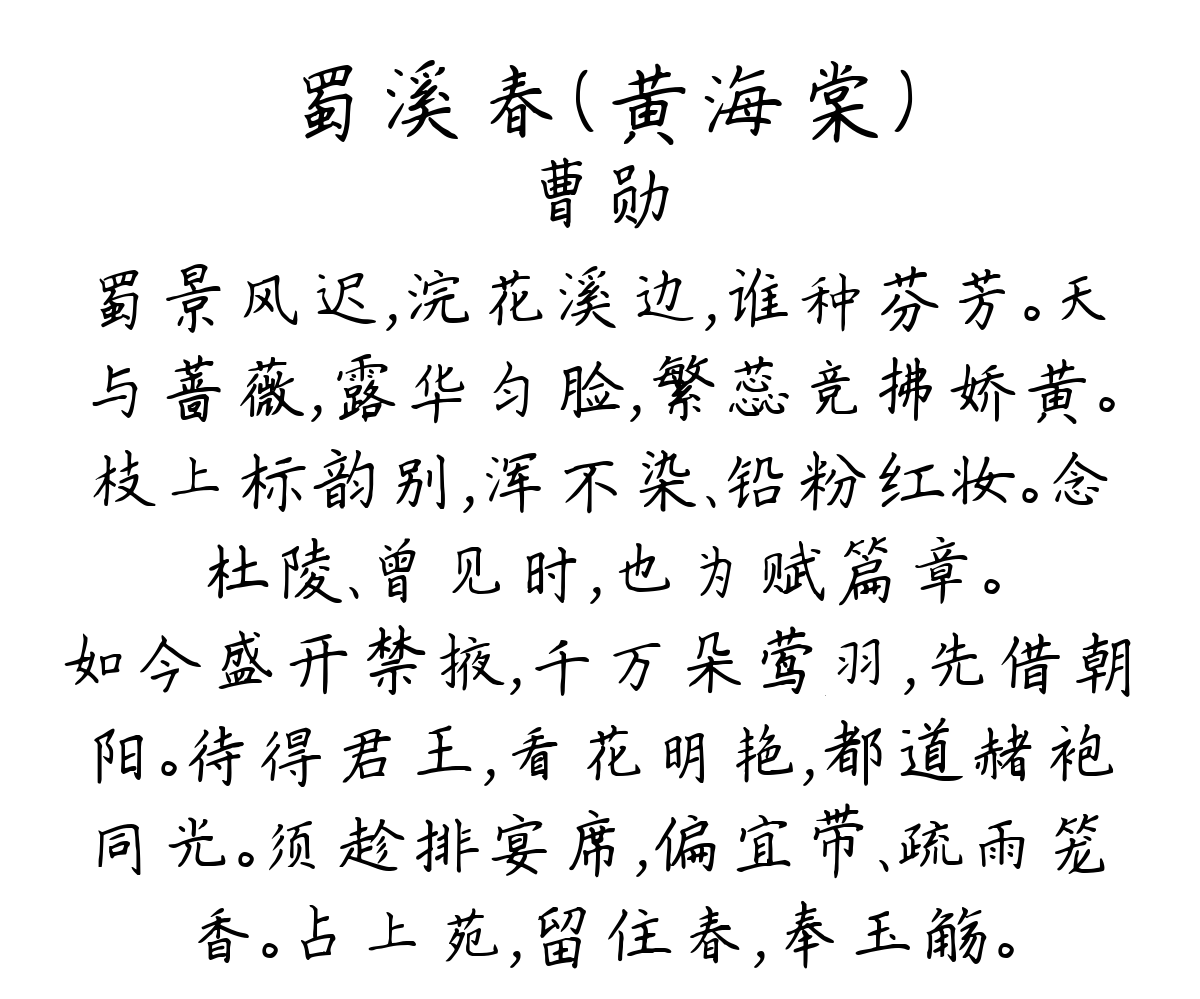 蜀溪春(黄海棠)
曹勋
蜀景风迟,浣花溪边,谁种芬芳。天
与蔷薇,露华匀脸,繁蕊竞拂娇黄。
枝上标韵别,浑不染、铅粉红妆。念
杜陵、曾见时,也为赋篇章。
如今盛开禁掖,千万朵莺羽,先借朝
阳。待得君王,看花明艳,都道赭袍
同光。须趁排宴席,偏宜带、疏雨笼
香。占上苑,留住春,奉玉觞。